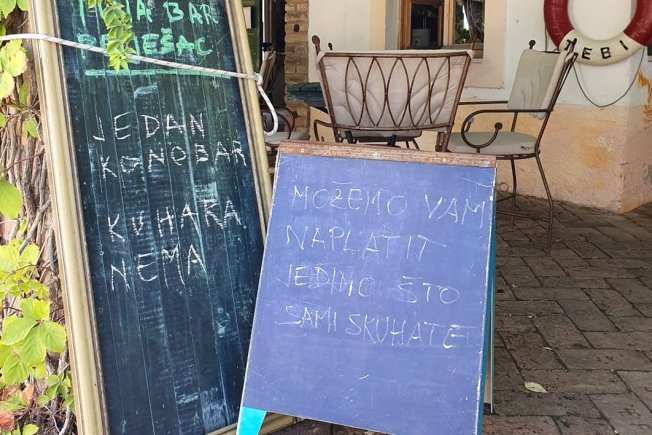 BAR
JEDAN
KONOBAR
KUHARA
NEMA
MOŽEMO VAM
NAPLATIT
JEDINO ŠTO
SAMI SKUHATE
NEBI